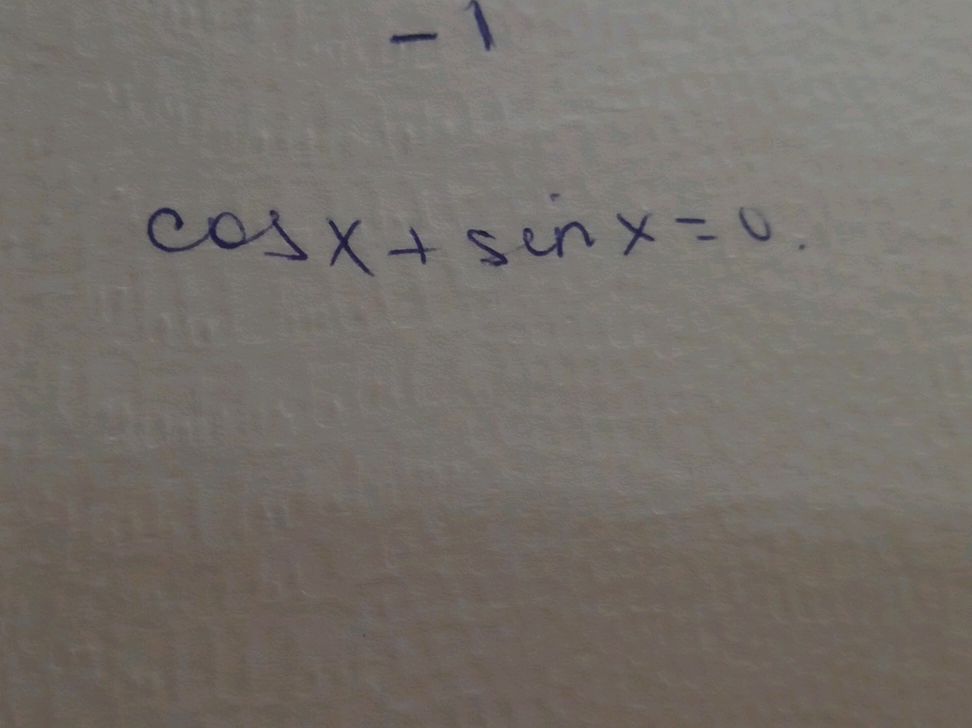 -1
cos x + sin x = 0.